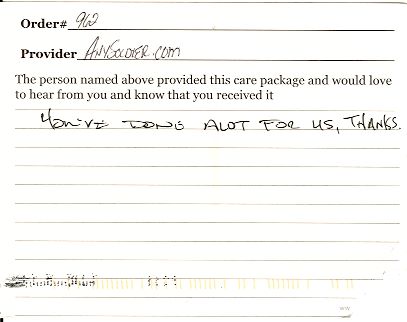 Order# 962
Provider AnySoldier.com
The person named above provided this care package and would love
to hear from you and know that you received it
You've done alot for us, Thanks.
ww